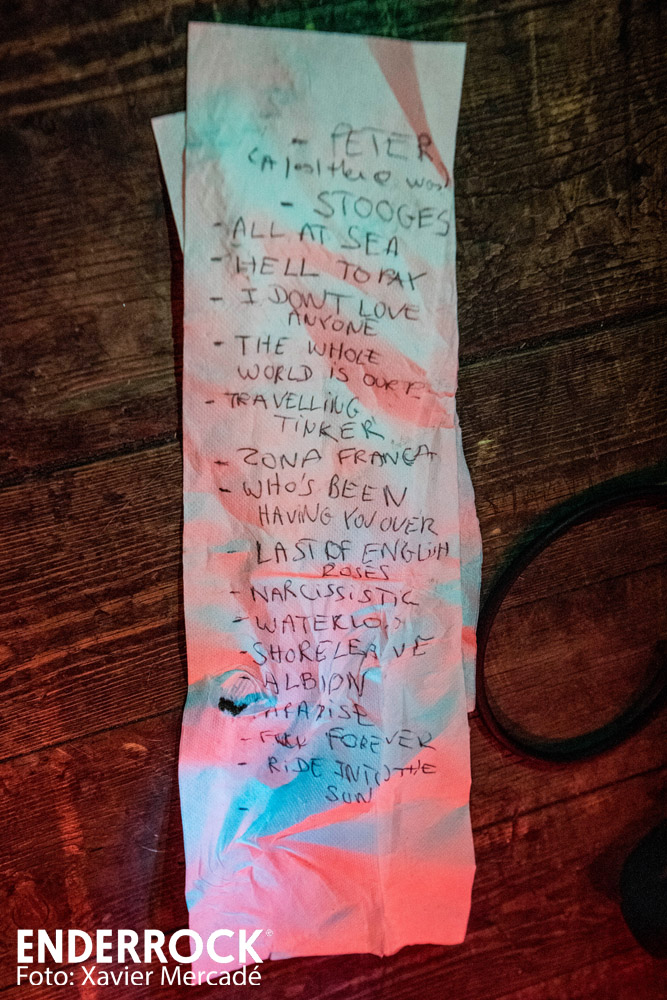 - PETER
- STOOGES
- ALL AT SEA
- HELL TO PAY
- I DONT LOVE
ANYONE
- THE WHOLE
WORLD IS OUR
- TRAVELLING
TINKER
- ZONA FRANCA
- WHO'S BEEN
HAVING YOU OVER
- LAST OF ENGLISH
ROSES
- NARCISSISTIC
- WATERLOO
- SHORELEAVE
- ALBION
- FUCK FOREVER
- RIDE INTO THE
SUN
-
ENDERROCK
Foto: Xavier Mercadé